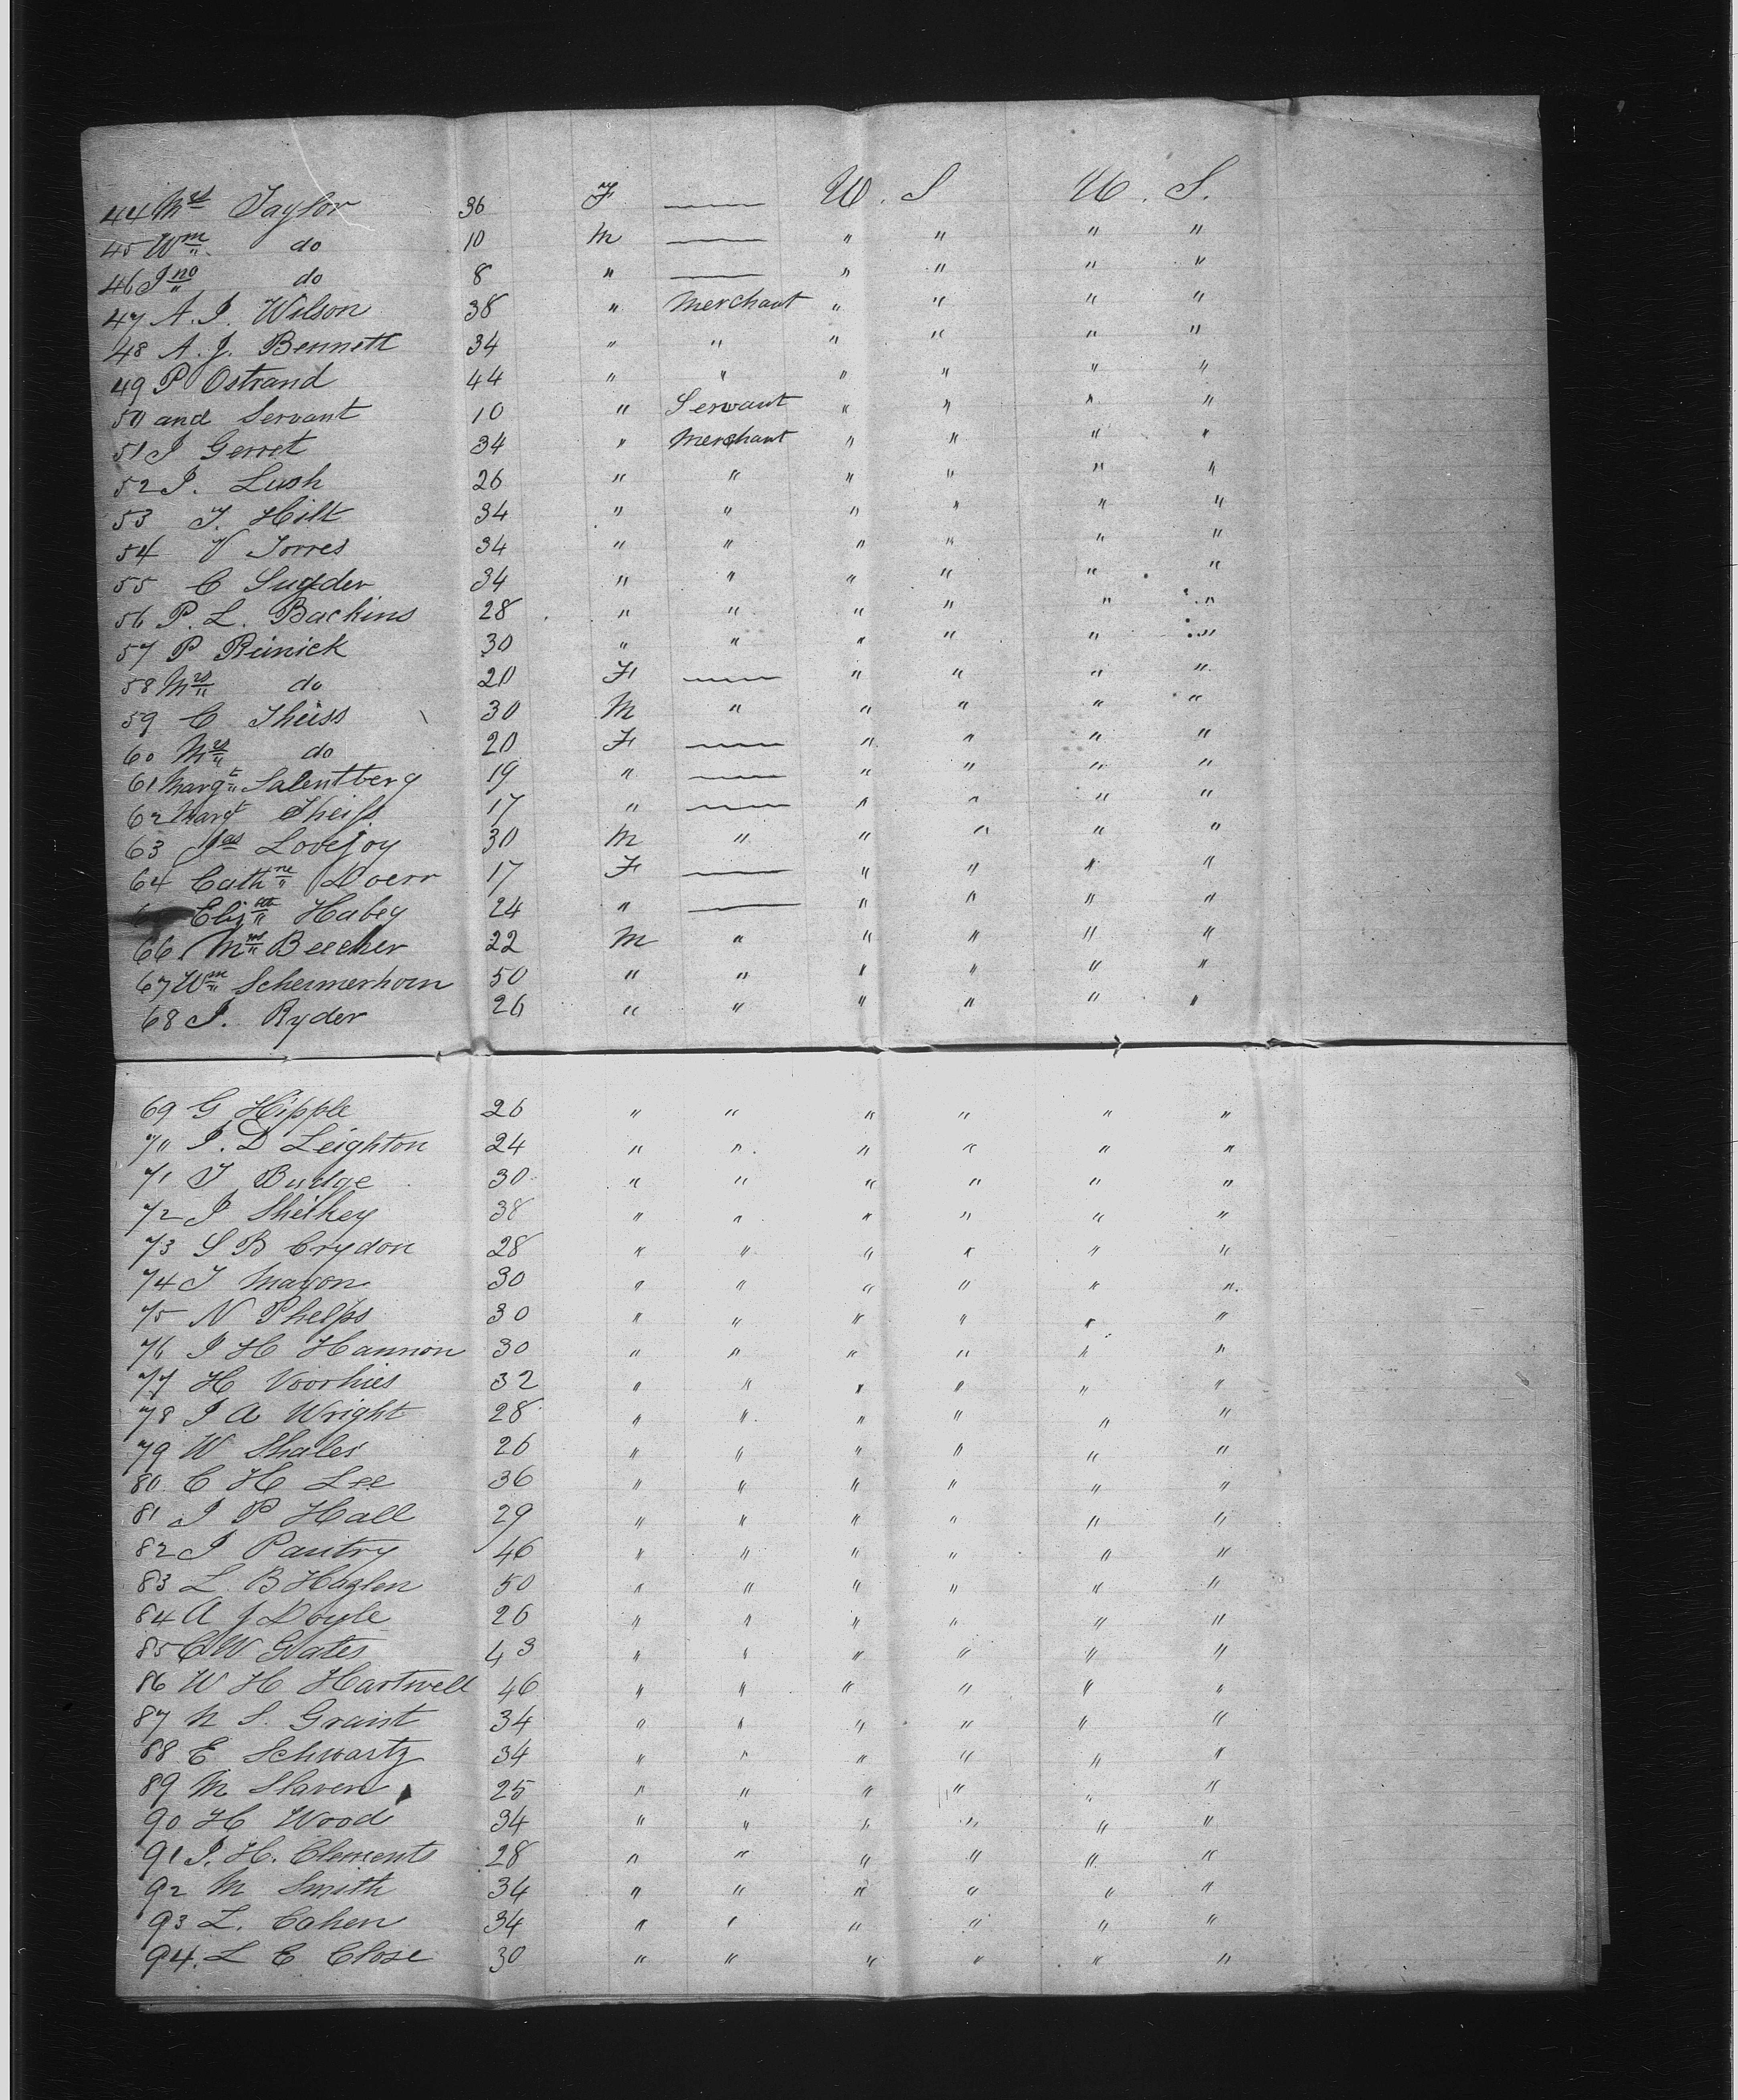 44 Mrs Taylor 36 F —— U. S U. S.
45 Wm do 10 M —— " " " "
46 Jno do 8 " —— " " " "
47 A. J. Wilson 38 " Merchant " " " "
48 A. J. Bennett 34 " " " " " "
49 P Ostrand 44 " " " " " "
50 and Servant 10 " Servant " " " "
51 J Gerret 34 " Merchant " " " "
52 J. Lush 26 " " " " " "
53 J. Hilt 34 " " " " " "
54 V Torres 34 " " " " " "
55 C Sugden 34 " " " " " "
56 P. L. Backins 28 " " " " " "
57 P Reinick 30 " " " " " "
58 Mrs do 20 F —— " " " "
59 C Theiss 30 M " " " " "
60 Mrs do 20 F —— " " " "
61 Margt Salentberg 19 " —— " " " "
62 Margt Theiss 17 " —— " " " "
63 Jas Lovejoy 30 M " " " " "
64 Cathne Doerr 17 F —— " " " "
Elizth Habey 24 " —— " " " "
66 Beecher 22 M " " " " "
67 Wm Schermerhorn 50 " " " " " "
68 J. Ryder 26 " " " " " "
69 G Hipple 26 " " " " " "
70 J. D Leighton 24 " " " " " "
71 T Budge 30 " " " " " "
72 J Sheihey 38 " " " " " "
73 S B Crydon 28 " " " " " "
74 J Mayon 30 " " " " " "
75 N Phelps 30 " " " " " "
76 J H Hannon 30 " " " " " "
77 H Voorhies 32 " " " " " "
78 J A Wright 28 " " " " " "
79 W Shales 26 " " " " " "
80 C H Lee 36 " " " " " "
81 J P Hall 29 " " " " " "
82 J Pantry 46 " " " " " "
83 L. B Hazlen 50 " " " " " "
84 A J Doyle 26 " " " " " "
85 C W Gates 43 " " " " " "
86 W H Hartwell 46 " " " " " "
87 N S. Grant 34 " " " " " "
88 E Schwartz 34 " " " " " "
89 M Slaven 25 " " " " " "
90 H Wood 34 " " " " " "
91 J. H. Clements 28 " " " " " "
92 M Smith 34 " " " " " "
93 L. Cohen 34 " " " " " "
94. L C Close 30 " " " " " "